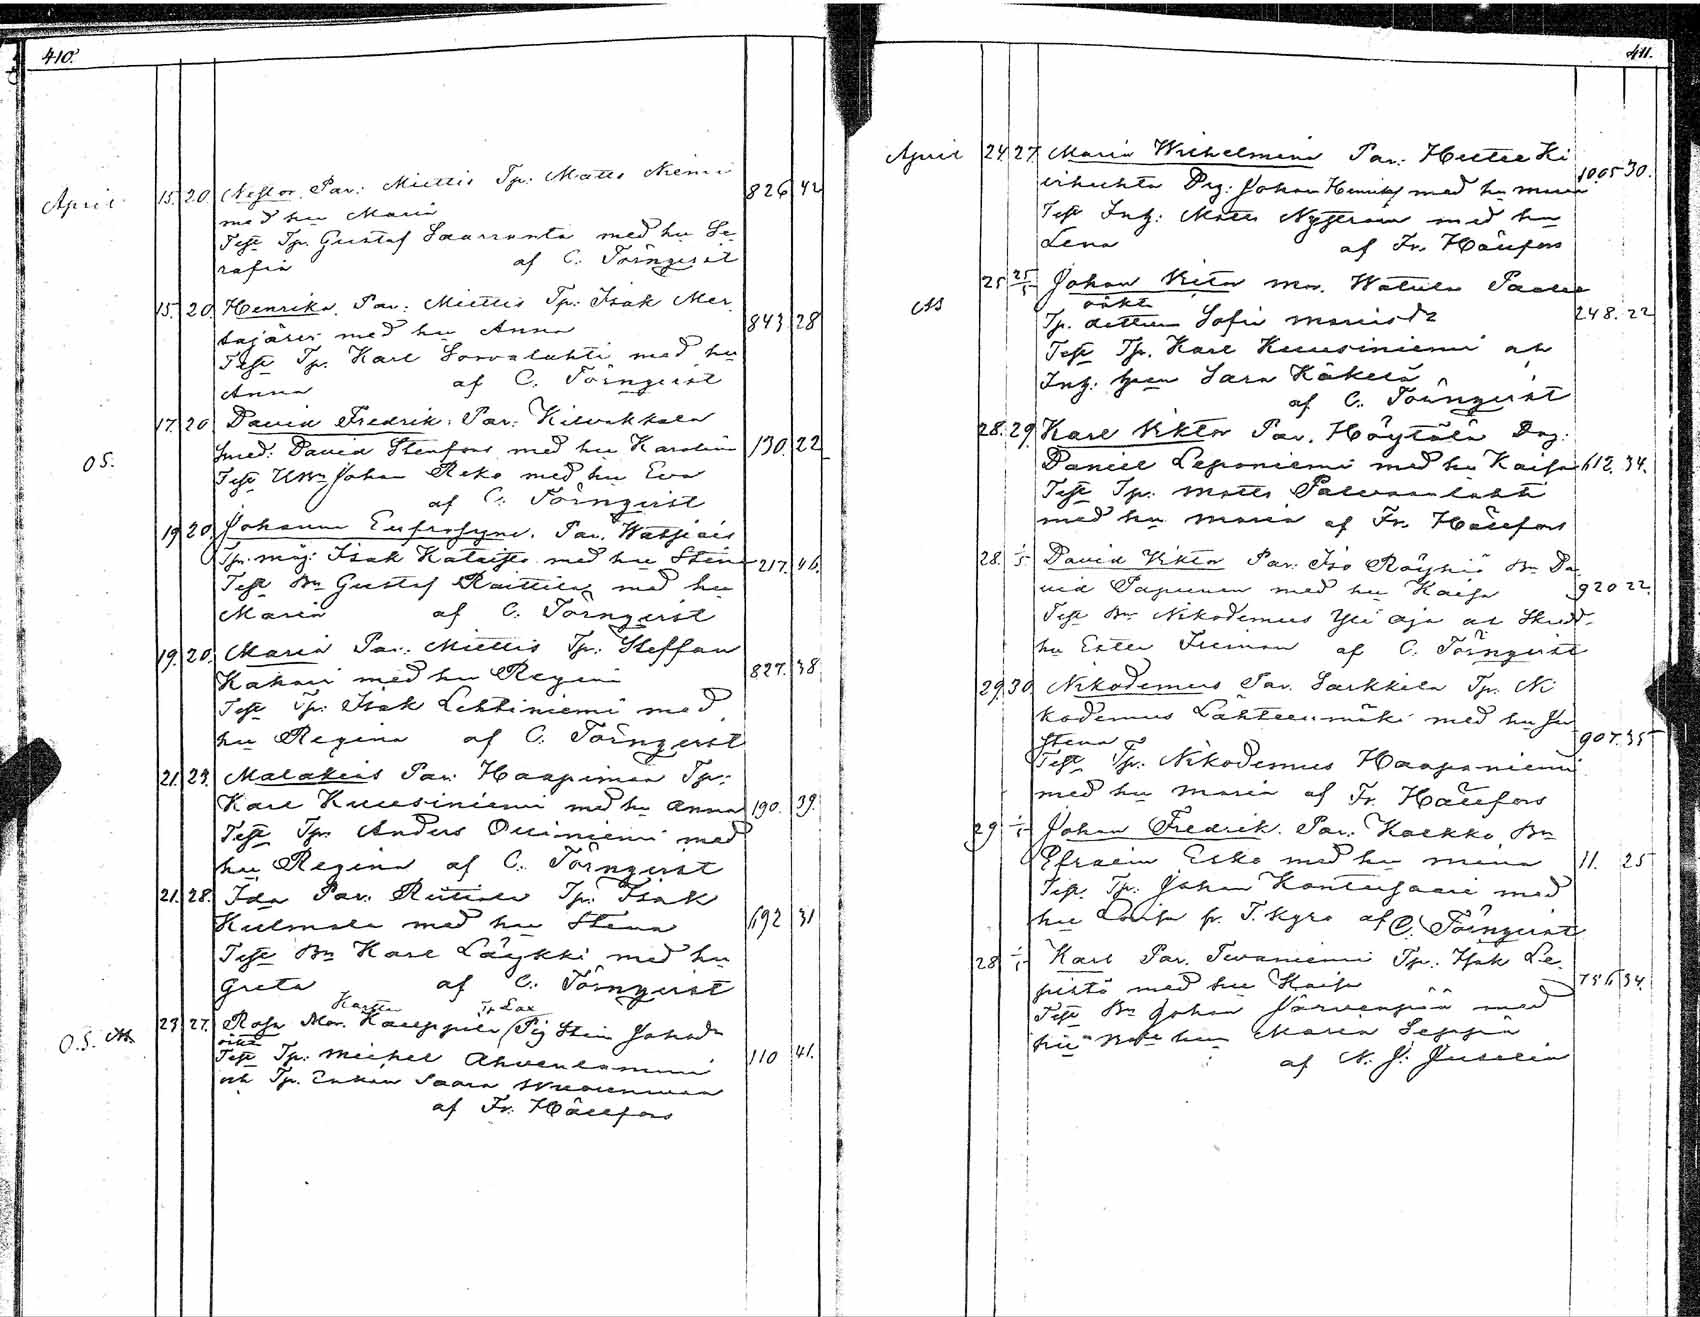 410.
April 15. 20. Nestor. Par: Miettis Tp: Matts Niemi 826 42
med hu Maria
Test Tp. Gustaf Saarranta med hu Se-
rafia af C. Törnqvist
15. 20. Henrika. Par: Miettis Tp: Isak Mer-
tajärvi med hu Anna 843 28
Test Tp. Karl Sorvalahti med hu
Anna af C. Törnqvist
17. 20 David Fredrik. Par: Kilvakkala
OS. Smed: David Stenfors med hu Karolina 130. 22
Test Johan Reko med hu Eva
af C. Törnqvist
19. 20. Johanna Eufrosyne. Par. Watsiais
Tp. måg: Isak Kataisto med hu Stina 217. 46.
Test Bn Gustaf Raittila med hu
Maria af C. Törnqvist
19. 20. Maria Par: Miettis Tp: Steffan
Kakari med hu Regina 827. 38
Test Tp: Isak Lehtiniemi med
hu Regina af C. Törnqvist
21. 23. Malakias Par: Haapimaa Tp:
Karl Kuusiniemi med hu Anna 190. 39.
Test Tp. Anders Ouiniemi med
hu Regina af C. Törnqvist
21. 28. Ida Par: Riitiala Tp: Isak
Kulmala med hu Stena 692 31
Test Bn Karl Läykki med hu
Greta af C. Törnqvist
23. 27. Rosa Mor. Kauppila Pig Stina Johsdr
O.S. oäkta
Test Tp: Michel Ahvenlammi 110 41.
och Tp. Enkan Saara
af Fr. Hällfors
411.
April 24. 27. Maria Wilhelmina Par: Hutee Ki
irhuhta Drg: Johan Henriks med hu Maria 1005 30.
Test Inh: Matts Nyström med hu
Lena af Fr. Hällfors
25 25/5 Johan Vikto mor. Watula Paalu
oäkta
Tp. dottern Sofia Mariasdr 248. 22
Test Tp. Karl Kuusiniemi och
Inh: Sara Käkelä
af C. Törnqvist
28. 29. Karl Viktor Par. Höytölä Drg:
Daniel Leponiemi med hu Kaisa 612. 34.
Test Tp: Matts Palvaanlahti
med hu Maria af Fr. Hällfors
28. 1/5 David Viktor Par: Iso Röyhiö Bn Da
vid Papunen med hu Kaisa 920 22.
Test Bn Nikodemus Yli äijä och Skrädd.
hu Ester Freiman af C. Törnqvist
29. 30. Nikodemus Par. Sarkkila Tp. Ni
kodemus Lähteenmäki med hu Ju
stena 907. 35
Test Tp: Nikodemus Haapaniemi
med hu Maria af Fr. Hällfors
29 1/5 Johan Fredrik. Par: Karkko Bn
Efraim Esko med hu Miina 11. 25
Test Tp: Johan Kontusaari med
hu Lovisa fr. T. Kyro af C. Törnqvist
28 1/5 Karl Par. Tevaniemi Tp: Isak Le
pistö med hu Kaisa 756 34.
Test Bn Johan Järvenpää med
hu Maria Seppä
af N. J. Juselin